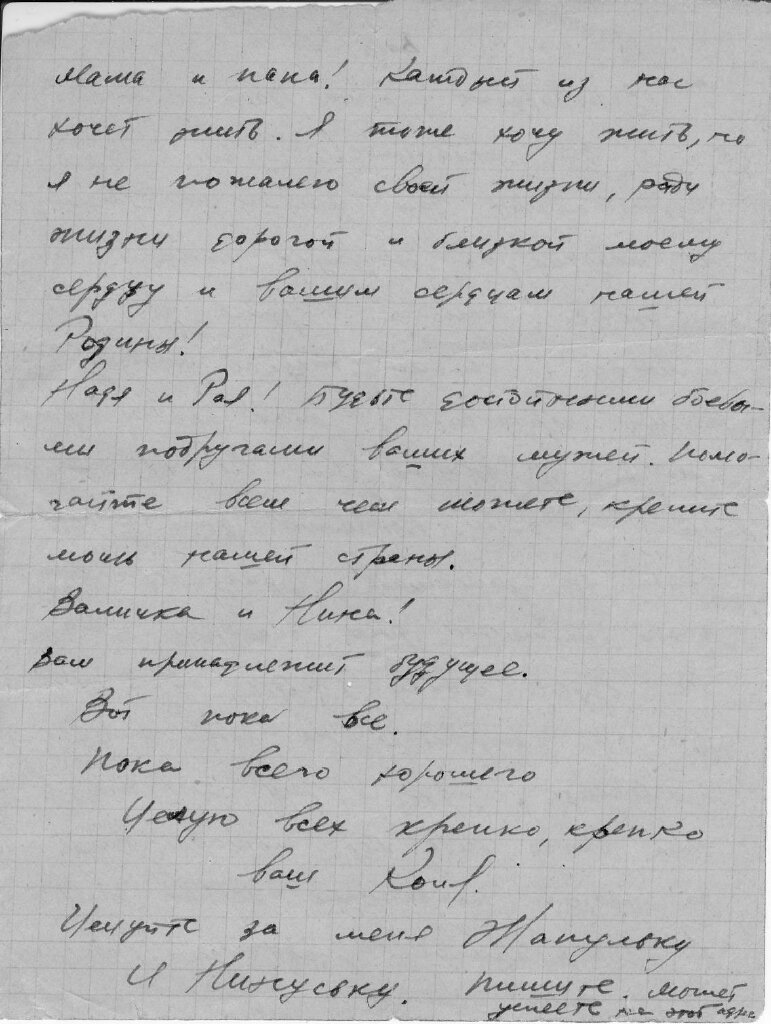 Мама и папа! Каждый из нас
хочет жить. Я тоже хочу жить, но
я не пожалею своей жизни, ради
жизни дорогой и близкой моему
сердцу и вашим сердцам нашей
Родины!
Надя и Рая! Будьте достойными боевы-
ми подругами ваших мужей. Помо-
гайте всем чем можете, крепите
мощь нашей страны.
Валичка и Нина!
Вам принадлежит будущее.
Вот пока все.
Пока всего хорошего
Целую всех крепко, крепко
ваш Коля.
Целуйте за меня
и Нинуську. Пишите. Может
успеете на этот адрес